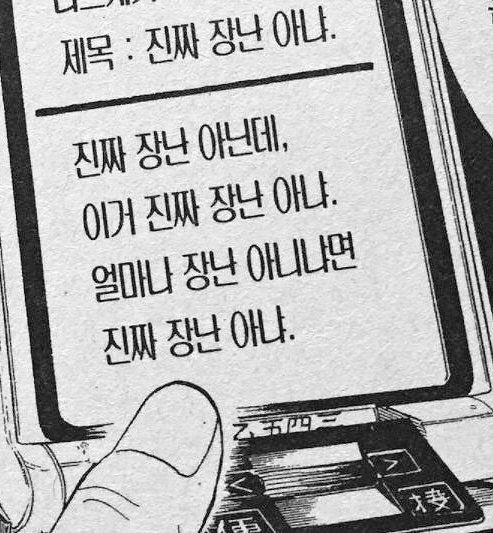 제목 : 진짜 장난 아냐.
진짜 장난 아닌데,
이거 진짜 장난 아냐.
얼마나 장난 아니냐면
진짜 장난 아냐.
<
>
接